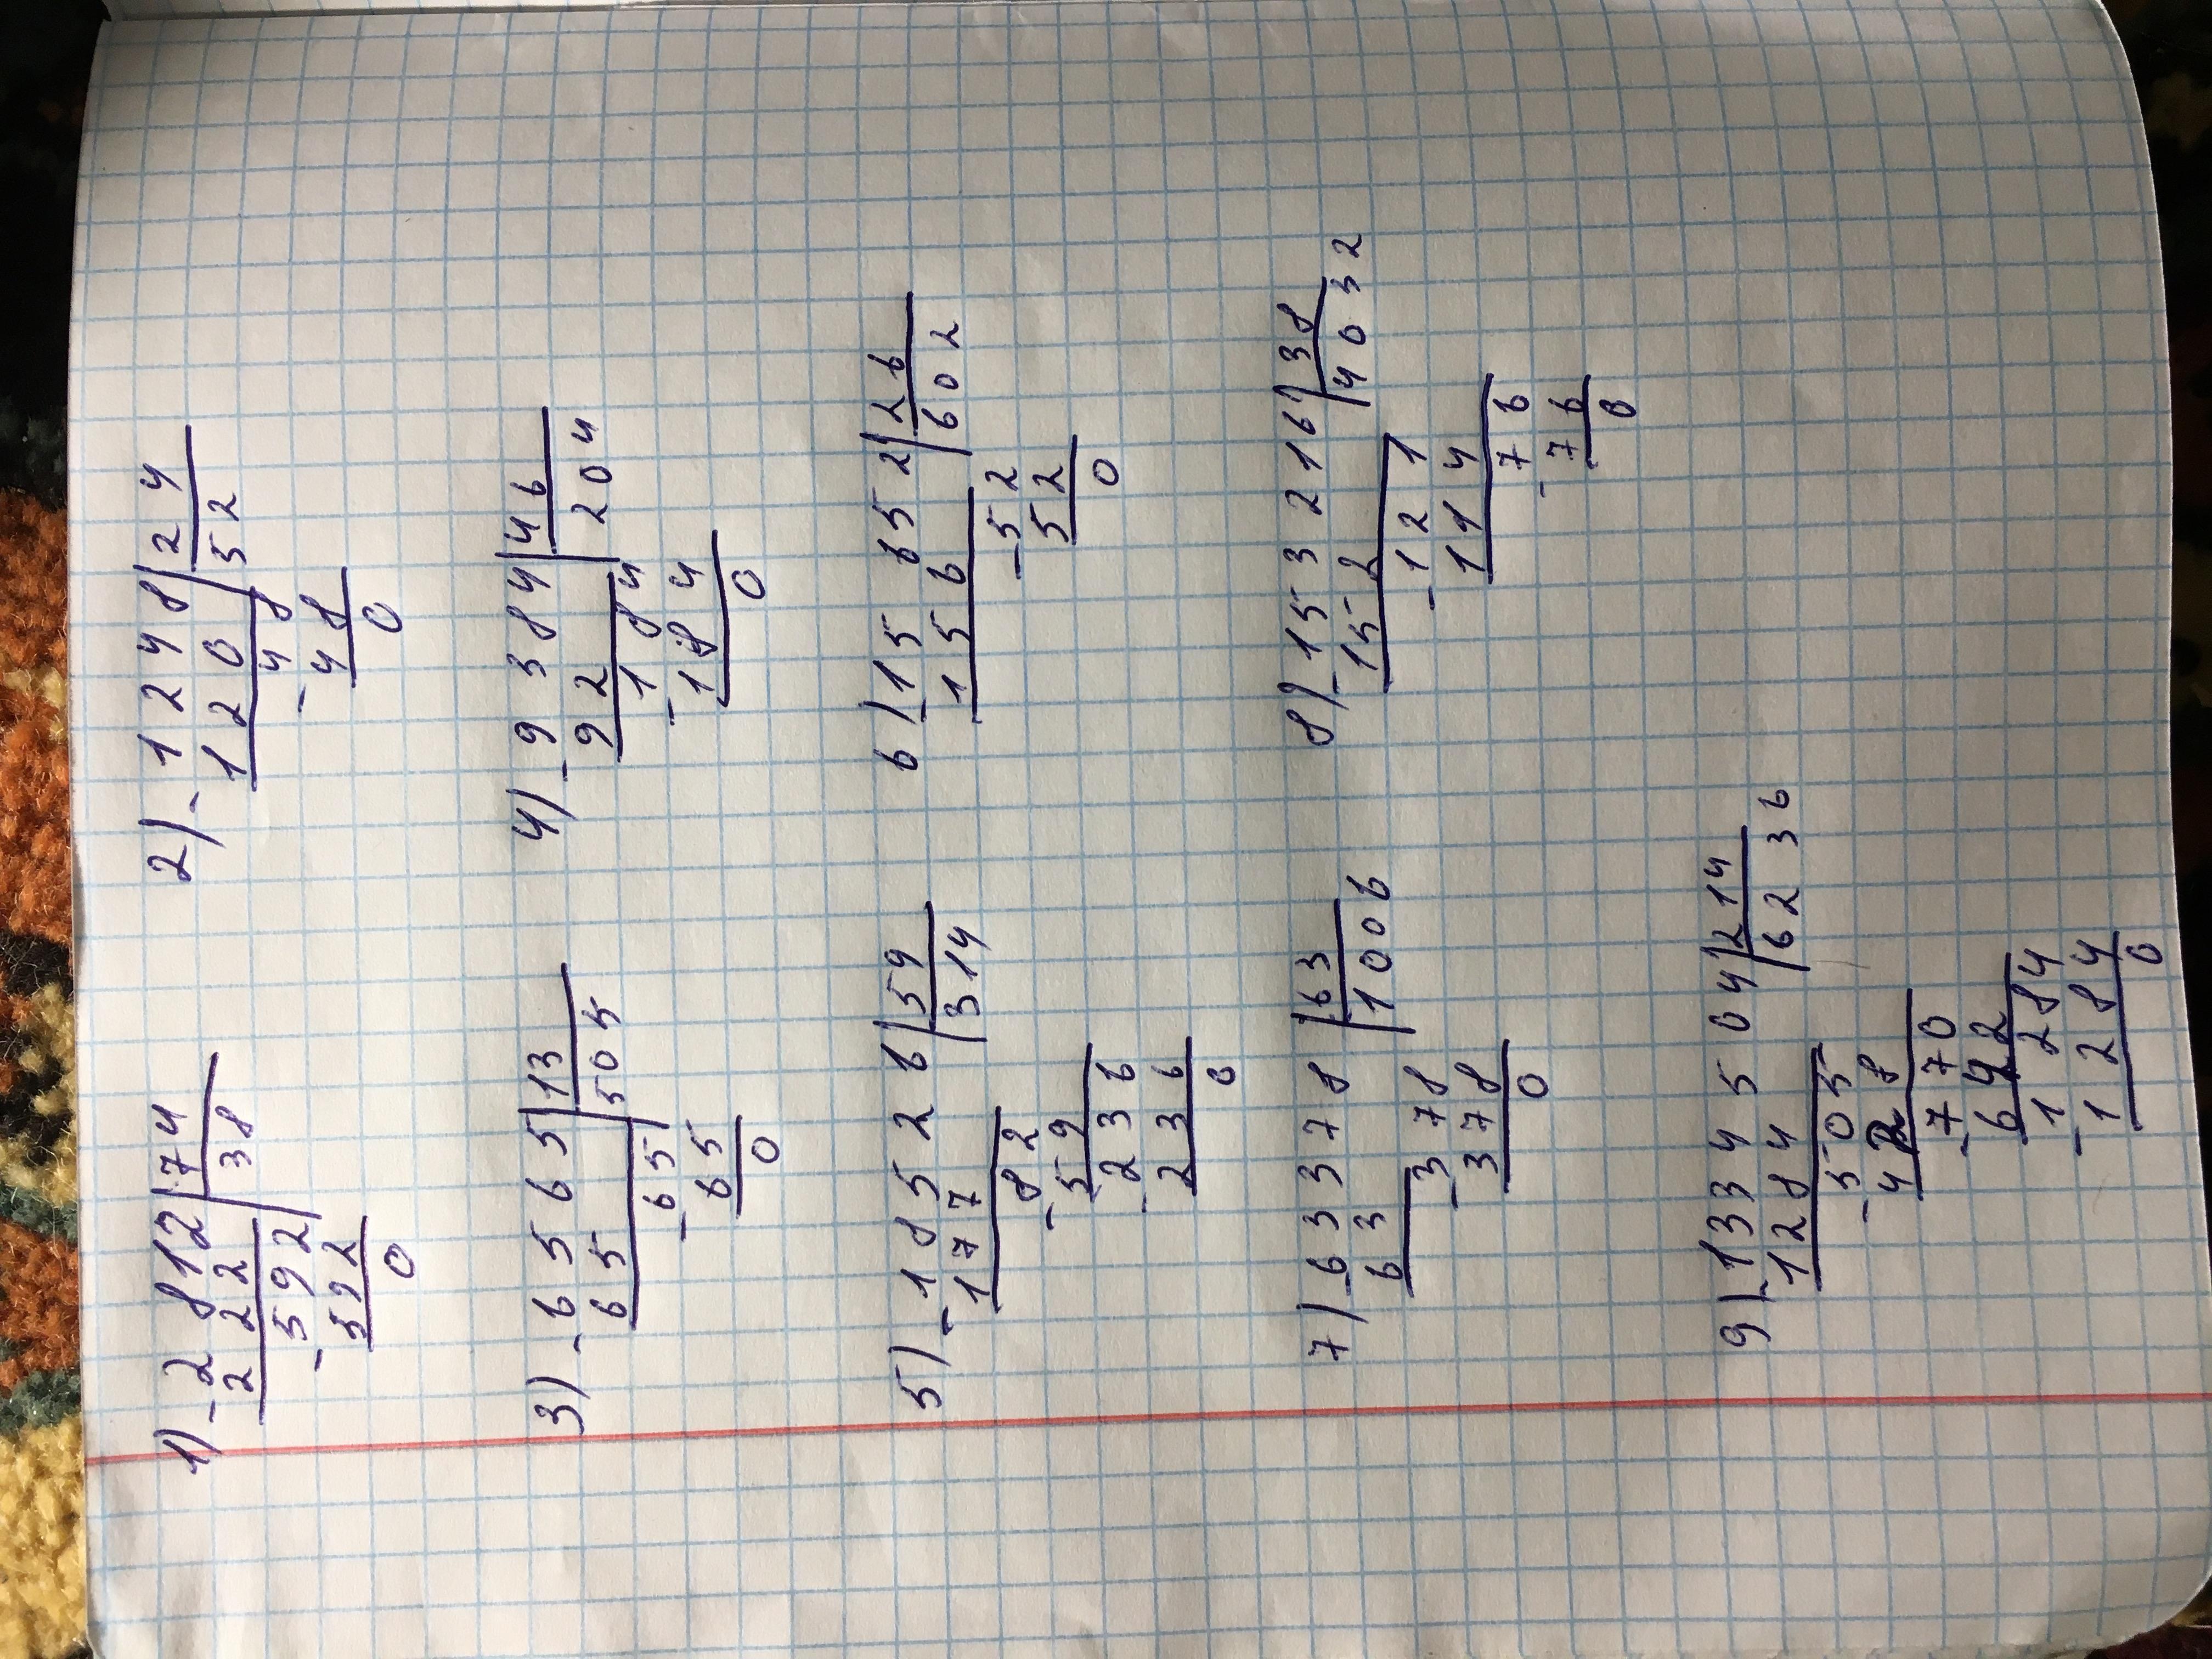 1) - 2 8 1 2 | 7 4
2 2 2 | 3 8
- 5 9 2
5 9 2
0
2) - 1 2 4 8 | 2 4
1 2 0 | 5 2
- 4 8
4 8
0
3) - 6 5 6 5 | 1 3
6 5 | 5 0 5
- 6 5
6 5
0
4) - 9 3 8 4 | 4 6
9 2 | 2 0 4
- 1 8 4
1 8 4
0
5) - 1 8 5 2 6 | 5 9
1 7 7 | 3 1 4
- 8 2
5 9
- 2 3 6
2 3 6
0
6) - 1 5 6 5 2 | 2 6
1 5 6 | 6 0 2
- 5 2
5 2
0
7) - 6 3 3 7 8 | 6 3
6 3 | 1 0 0 6
- 3 7 8
3 7 8
0
8) - 1 5 3 2 1 6 | 3 8
1 5 2 | 4 0 3 2
- 1 2 1
1 1 4
- 7 6
7 6
0
9) - 1 3 3 4 5 0 4 | 2 1 4
1 2 8 4 | 6 2 3 6
- 5 0 5
4 2 8
- 7 7 0
6 4 2
- 1 2 8 4
1 2 8 4
0